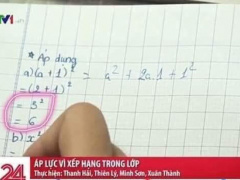 VTV1
* Áp dụng
a)(a+1)² = a² + 2a.1 + 1²
=(2+1)²
= 3²
= 6
b) x²
24
ÁP LỰC VÌ XẾP HẠNG TRONG LỚP
Thực hiện: Thanh Hải, Thiên Lý, Minh Sơn, Xuân Thành